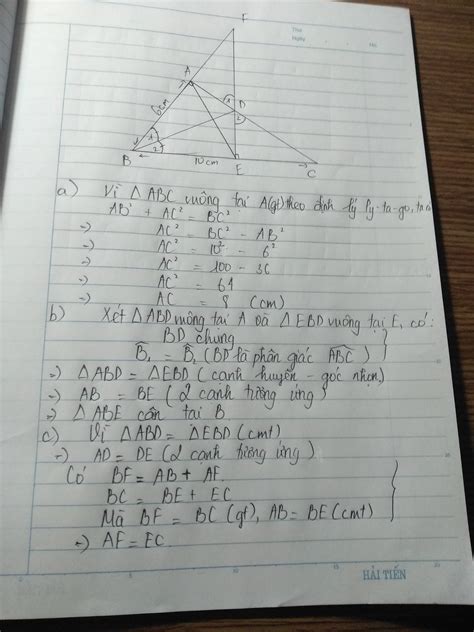 Thứ
Ngày
No
F
A
6cm
1
D
2
1
2
B
10cm
E
C
a) Vì △ABC vuông tại A(gt) theo định lý Py-ta-go, ta có
AB² + AC² = BC²
-) AC² = BC² - AB²
-) AC² = 10² - 6²
-) AC² = 100 - 36
-) AC² = 64
-) AC = 8 (cm)
b) Xét △ABD vuông tại A và △EBD vuông tại E, có:
BD chung
B̂₁ = B̂₂ (BD là phân giác ABC)
-) △ABD = △EBD (cạnh huyền - góc nhọn)
-) AB = BE (2 cạnh tương ứng)
-) △ABE cân tại B
c) Vì △ABD = △EBD (cmt)
-) AD = DE (2 cạnh tương ứng)
Có BF = AB + AF
BC = BE + EC
Mà BF = BC (gt), AB = BE (cmt)
-) AF = EC.
HẢI TIẾN